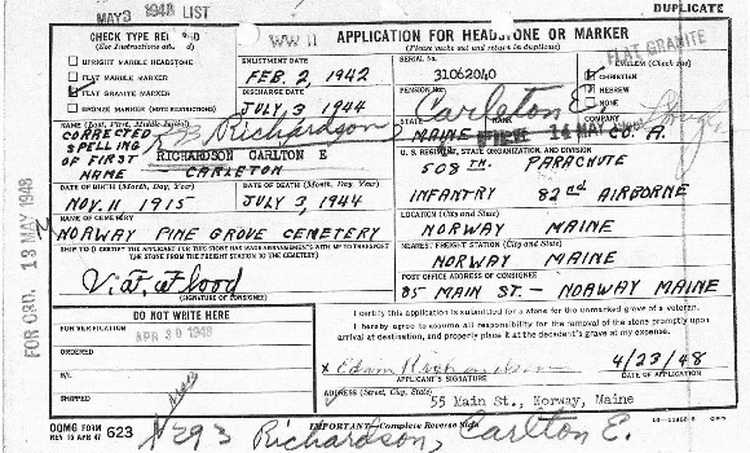 DUPLICATE
MAY 3 1948 LIST
CHECK TYPE
(See Instructions
UPRIGHT MARBLE HEADSTONE
FLAT MARBLE MARKER
FLAT GRANITE MARKER
BRONZE MARKER (NOTE RESTRICTIONS)
WW II
APPLICATION FOR HEADSTONE OR MARKER
(Please make out and return in duplicate)
ENLISTMENT DATE
FEB. 2, 1942
DISCHARGE DATE
JULY 3 1944
SERIAL No.
31062040
PENSION No.
FLAT GRANITE
EMBLEM (Check one)
CHRISTIAN
HEBREW
NONE
Carleton E
NAME (Last, First, Middle Initial)
CORRECTED
SPELLING
OF FIRST
NAME - CARLETON
Richardson
RICHARDSON CARLTON E
STATE
MAINE
RANK
14 MAY
CO. A.
U. S. REGIMENT, STATE ORGANIZATION, AND DIVISION
508 TH. PARACHUTE
INFANTRY 82nd AIRBORNE
DATE OF BIRTH (Month, Day, Year)
NOV. 11 1915
DATE OF DEATH (Month, Day, Year)
JULY 3, 1944
NAME OF CEMETERY
NORWAY PINE GROVE CEMETERY
LOCATION (City and State)
NORWAY MAINE
SHIP TO (I CERTIFY THE APPLICANT FOR THIS STONE HAS MADE ARRANGEMENTS WITH ME TO TRANSPORT
THE STONE FROM THE FREIGHT STATION TO THE CEMETERY)
(SIGNATURE OF CONSIGNEE)
NEAREST FREIGHT STATION (City and State)
NORWAY MAINE
POST OFFICE ADDRESS OF CONSIGNEE
85 MAIN ST. - NORWAY MAINE
FOR ORD. 13 MAY 1948
DO NOT WRITE HERE
FOR VERIFICATION
APR 30 1948
ORDERED
B/L
SHIPPED
I certify this application is submitted for a stone for the unmarked grave of a veteran.
I hereby agree to assume all responsibility for the removal of the stone promptly upon
arrival at destination, and properly place it at the decedent's grave at my expense.
x Edwin Richardson
4/23/48
APPLICANT'S SIGNATURE
DATE OF APPLICATION
ADDRESS (Street, City, State)
55 Main St., Norway, Maine
OQMG FORM
REV 15 APR 47 623
IMPORTANT—Complete Reverse Side
293 Richardson, Carlton E.